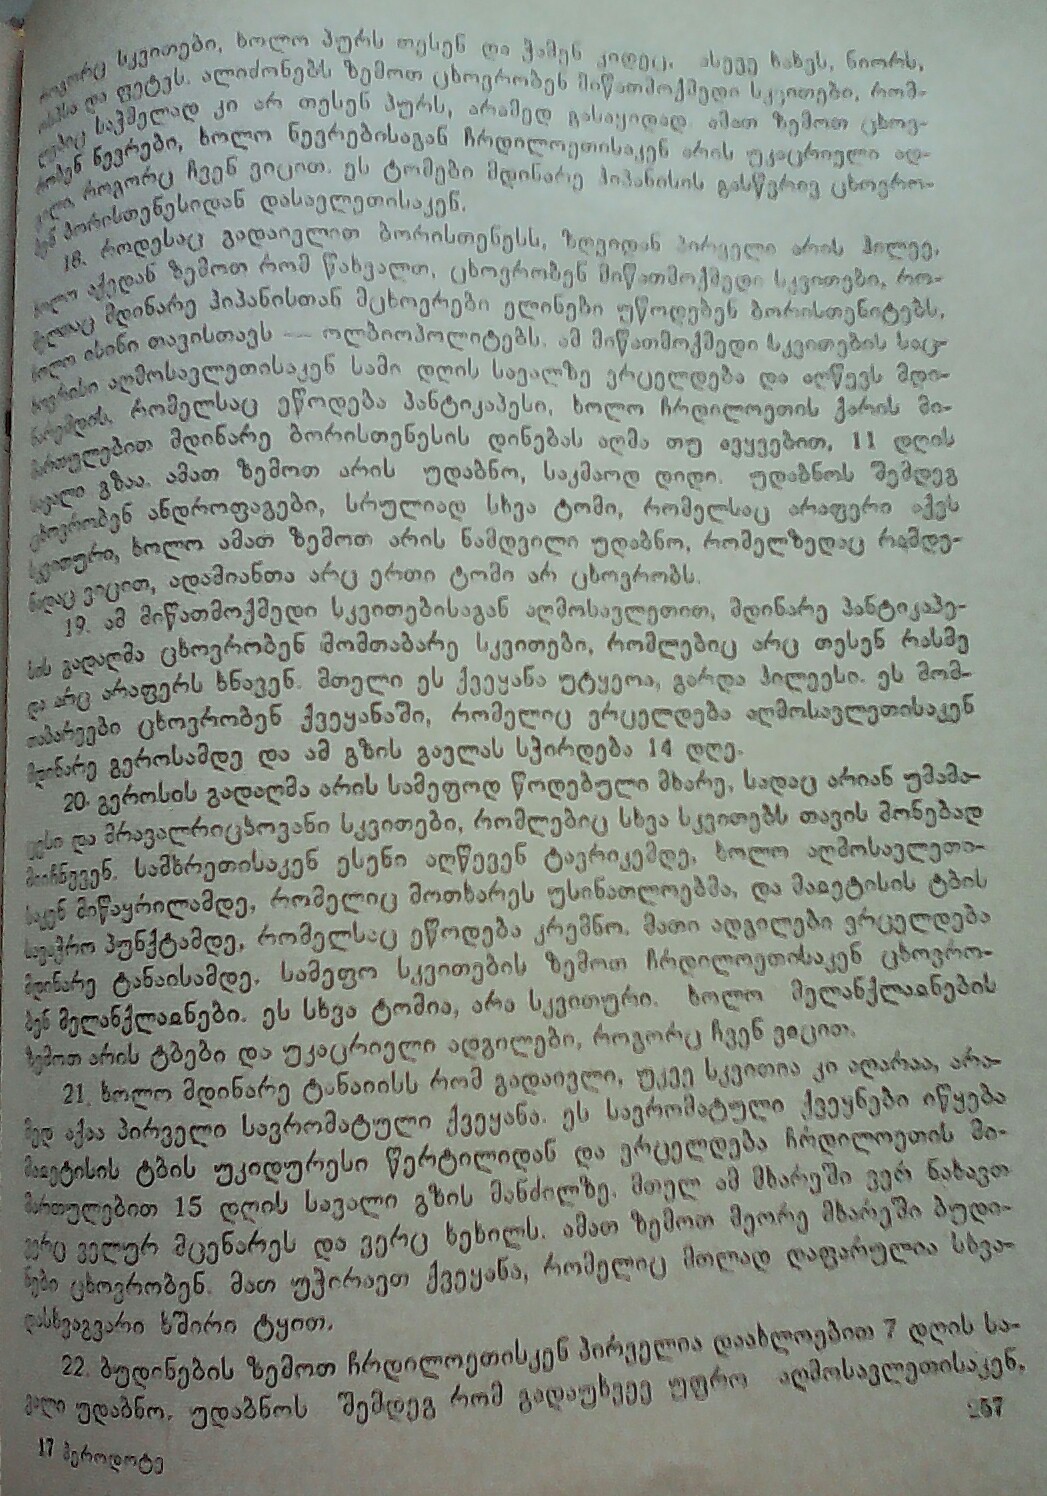 როგორც სკვითები, ხოლო პურს თესენ და ჭამენ კიდეც, ასევე ხახვს, ნიორს,
ოსპსა და ფეტვს. ალიძონებს ზემოთ ცხოვრობენ მიწათმოქმედი სკვითები, რომ-
ლებიც საჭმელად კი არ თესენ პურს, არამედ გასაყიდად. ამათ ზემოთ ცხოვ-
რობენ ნევრები, ხოლო ნევრებისაგან ჩრდილოეთისაკენ არის უკაცრიელი ად-
გილი, როგორც ჩვენ ვიცით. ეს ტომები მდინარე ჰიპანისის გასწვრივ ცხოვრო-
ბენ ბორისთენესიდან დასავლეთისაკენ.
18. როდესაც გადაივლით ბორისთენესს, ზღვიდან პირველი არის ჰილეე,
ხოლო აქედან ზემოთ რომ წახვალთ, ცხოვრობენ მიწათმოქმედი სკვითები, რო-
მელთაც მდინარე ჰიპანისთან მცხოვრები ელინები უწოდებენ ბორისთენიტებს,
ხოლო ისინი თავისთავს — ოლბიოპოლიტებს. ამ მიწათმოქმედი სკვითების საც-
ხოვრისი აღმოსავლეთისაკენ სამი დღის სავალზე ვრცელდება და აღწევს მდი-
ნარემდის, რომელსაც ეწოდება პანტიკაპესი, ხოლო ჩრდილოეთის ქარის მი-
მართულებით მდინარე ბორისთენესის დინებას აღმა თუ ავყვებით, 11 დღის
სავალი გზაა. ამათ ზემოთ არის უდაბნო, საკმაოდ დიდი. უდაბნოს შემდეგ
ცხოვრობენ ანდროფაგები, სრულიად სხვა ტომი, რომელსაც არაფერი აქვს
სკვითური, ხოლო ამათ ზემოთ არის ნამდვილი უდაბნო, რომელზედაც რამდე-
ნადაც ვიცით, ადამიანთა არც ერთი ტომი არ ცხოვრობს.
19. ამ მიწათმოქმედი სკვითებისაგან აღმოსავლეთით, მდინარე პანტიკაპე-
სის გადაღმა ცხოვრობენ მომთაბარე სკვითები, რომლებიც არც თესენ რასმე
და არც არაფერს ხნავენ. მთელი ეს ქვეყანა უტყეოა, გარდა ჰილეესი. ეს მომ-
თაბარეები ცხოვრობენ ქვეყანაში, რომელიც ვრცელდება აღმოსავლეთისაკენ
მდინარე გეროსამდე და ამ გზის გავლას სჭირდება 14 დღე.
20. გეროსის გადაღმა არის სამეფოდ წოდებული მხარე, სადაც არიან უმამა-
ცესი და მრავალრიცხოვანი სკვითები, რომლებიც სხვა სკვითებს თავის მონებად
მიიჩნევენ. სამხრეთისაკენ ესენი აღწევენ ტავრიკემდე, ხოლო აღმოსავლეთი-
საკენ მიწაყრილამდე, რომელიც მოთხარეს უსინათლოებმა, და მაჲეტისის ტბის
სავაჭრო პუნქტამდე, რომელსაც ეწოდება კრემნო. მათი ადგილები ვრცელდება
მდინარე ტანაისამდე. სამეფო სკვითების ზემოთ ჩრდილოეთისაკენ ცხოვრო-
ბენ მელანქლაჲნები. ეს სხვა ტომია, არა სკვითური. ხოლო მელანქლაჲნების
ზემოთ არის ტბები და უკაცრიელი ადგილები, როგორც ჩვენ ვიცით.
21. ხოლო მდინარე ტანაიისს რომ გადაივლი, უკვე სკვითია კი აღარაა, არა-
მედ აქაა პირველი სავრომატული ქვეყანა. ეს სავრომატული ქვეყნები იწყება
მაჲეტისის ტბის უკიდურესი წერტილიდან და ვრცელდება ჩრდილოეთის მი-
მართულებით 15 დღის სავალი გზის მანძილზე. მთელ ამ მხარეში ვერ ნახავთ
ვერც ველურ მცენარეს და ვერც ხეხილს. ამათ ზემოთ მეორე მხარეში ბუდი-
ნები ცხოვრობენ. მათ უჭირავთ ქვეყანა, რომელიც მთლად დაფარულია სხვა-
დასხვაგვარი ხშირი ტყით.
22. ბუდინების ზემოთ ჩრდილოეთისკენ პირველია დაახლოებით 7 დღის სა-
ვალი უდაბნო. უდაბნოს შემდეგ რომ გადაუხვევ უფრო აღმოსავლეთისაკენ,
257
17 ჰეროდოტე